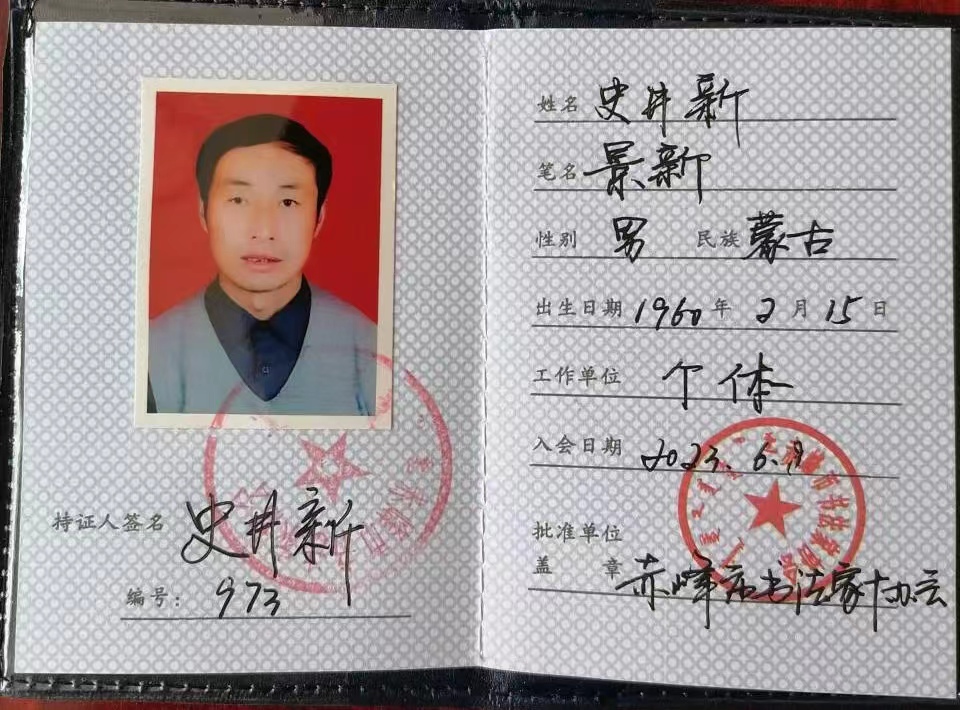 持证人签名 史井新
编号: 973
姓名 史井新
笔名 景新
性别 男 民族 蒙古
出生日期 1960 年 2 月 15 日
工作单位 个体
入会日期 2023.6.9
批准单位
盖 章 赤峰市书法家协会
赤峰市书法家协会